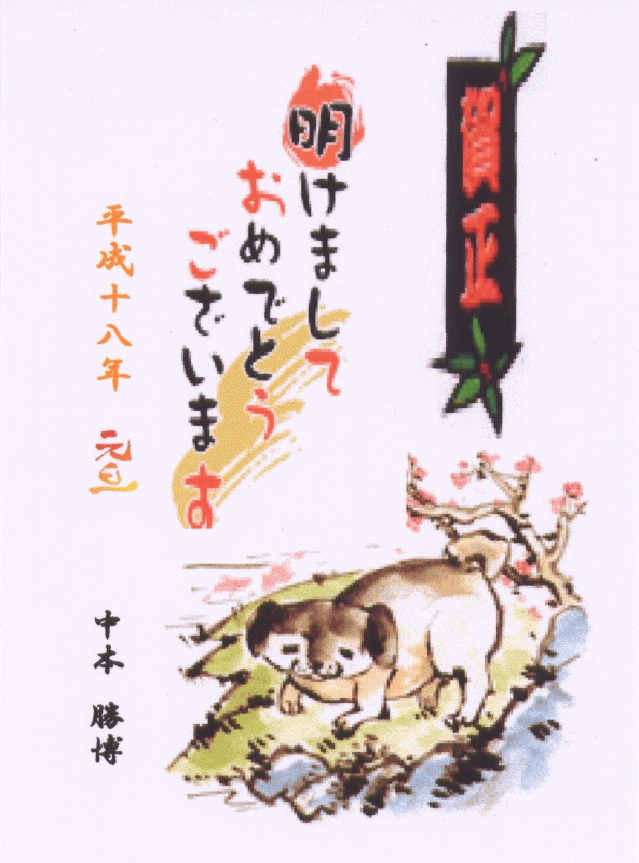 賀正
明けまして
おめでとう
ございます
平成十八年 元旦
中本 勝博